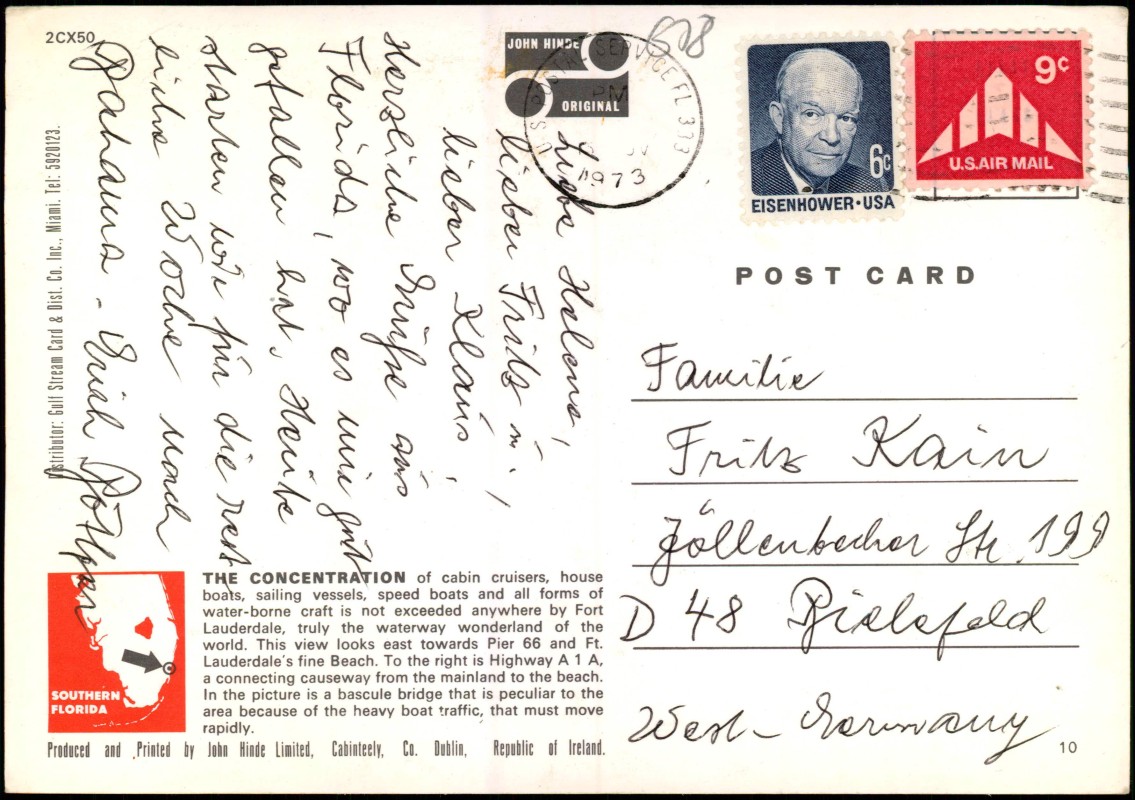 2CX50
JOHN HINDE
ORIGINAL
608
U.S. POSTAL SERVICE, FL 333
PM
1973
6c
EISENHOWER·USA
9c
U.S. AIR MAIL
POST CARD
Liebe Helene,
lieber Fritz u.,
lieber Klaus,
Herzliche Grüße aus
Florida, wo es mir gut
gefallen hat. Heute
starten wir für die restl.
liche Woche nach
Bahama. Erich
Familie
Fritz Kain
Jöllenbecker Str. 199
D 48 Bielefeld
West-Germany
Distributor: Gulf Stream Card & Dist. Co. Inc., Miami. Tel: 5920123.
SOUTHERN
FLORIDA
THE CONCENTRATION of cabin cruisers, house
boats, sailing vessels, speed boats and all forms of
water-borne craft is not exceeded anywhere by Fort
Lauderdale, truly the waterway wonderland of the
world. This view looks east towards Pier 66 and Ft.
Lauderdale's fine Beach. To the right is Highway A 1 A,
a connecting causeway from the mainland to the beach.
In the picture is a bascule bridge that is peculiar to the
area because of the heavy boat traffic, that must move
rapidly.
Produced and Printed by John Hinde Limited, Cabinteely, Co. Dublin, Republic of Ireland.
10